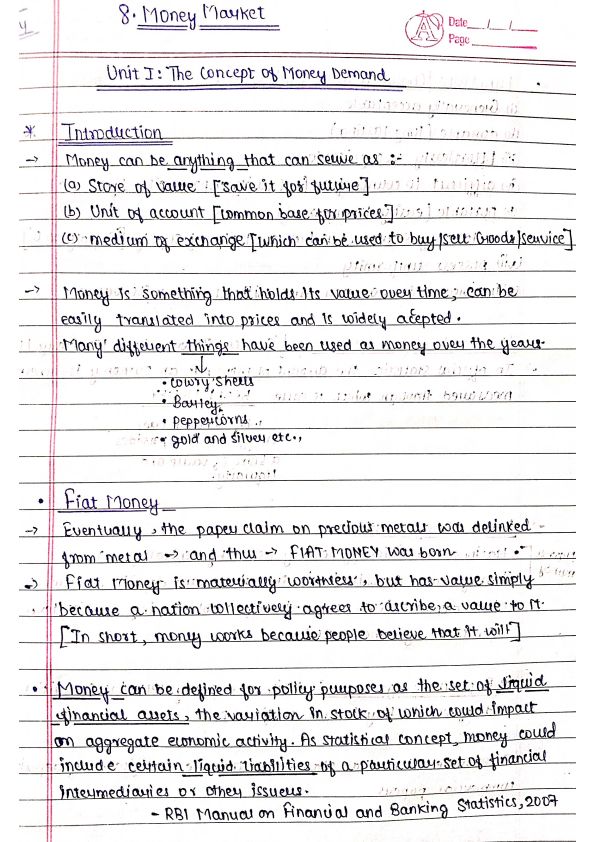 8. Money Market
Date __/__/__
Page
Unit I: The Concept of Money Demand
* Introduction
→ Money can be anything that can serve as :-
(a) Store of value [save it for future]
(b) Unit of account [common base for prices]
(c) medium of exchange [which can be used to buy/sell Goods/service]
→ Money is something that holds its value over time, can be
easily translated into prices and is widely acepted.
Many different things have been used as money over the years.
• cowry shells
• Barley,
• peppercorns
• gold and silver etc.,
• Fiat Money
→ Eventually, the paper claim on precious metals was delinked
from metal → and thus → FIAT MONEY was born
→ Fiat Money is materially worthless, but has value simply
because a nation collectively agrees to ascribe a value to it.
[In short, money works because people believe that it will]
• Money can be defined for policy purposes as the set of liquid
financial assets, the variation in stock of which could impact
on aggregate economic activity. As statistical concept, money could
include certain liquid liabilities of a particular set of financial
intermediaries or other issuers.
- RBI Manual on Financial and Banking Statistics, 2007